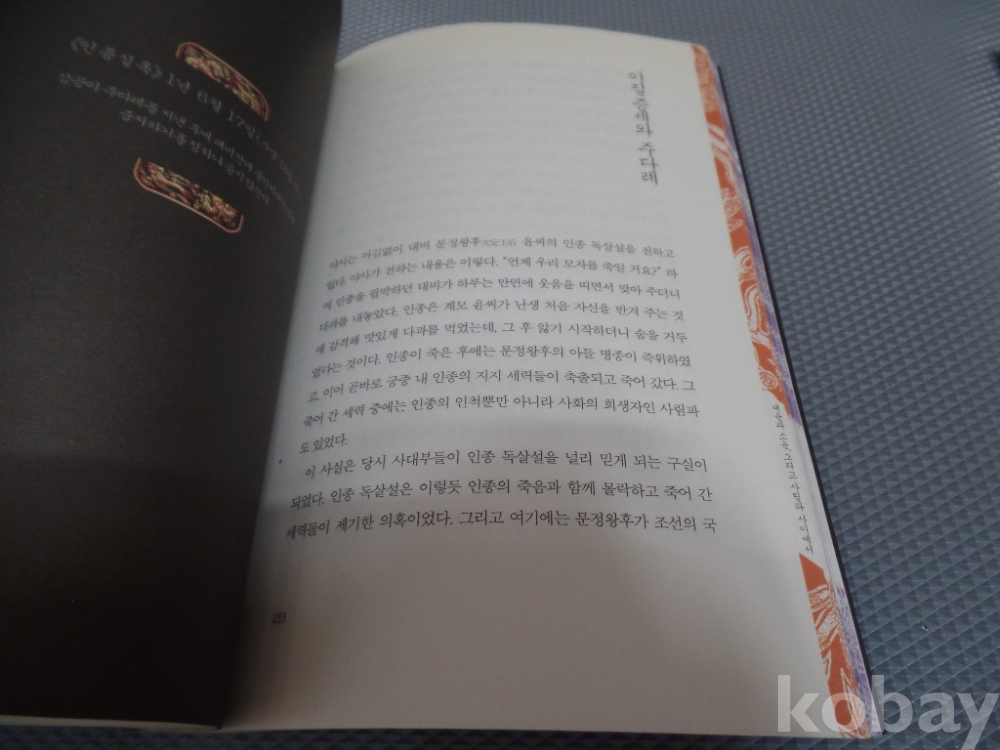 《인종실록》 1년 6월 17일
삼공이 주다례를 지낸 후에
이질 증세와 주다례
야사는 어김없이 대비 문정왕후 윤씨의 인종 독살설을 전하고
있다. 야사가 전하는 내용은 이렇다. “언제 우리 모자를 죽일 거요?” 하
며 인종을 핍박하던 대비가 하루는 만면에 웃음을 띠면서 맞아 주더니
다과를 내놓았다. 인종은 계모 윤씨가 난생 처음 자신을 반겨 주는 것
에 감격해 맛있게 다과를 먹었는데, 그 후 앓기 시작하더니 숨을 거두
었다는 것이다. 인종이 죽은 후에는 문정왕후의 아들 명종이 즉위하였
고, 이어 곧바로 궁중 내 인종의 지지 세력들이 축출되고 죽어 갔다. 그
죽어 간 세력 중에는 인종의 인척뿐만 아니라 사화의 희생자인 사림파
도 있었다.
이 사실은 당시 사대부들이 인종 독살설을 널리 믿게 되는 구실이
되었다. 인종 독살설은 이렇듯 인종의 죽음과 함께 몰락하고 죽어 간
세력들이 제기한 의혹이었다. 그리고 여기에는 문정왕후가 조선의 국
그리고 사림파 사이에서
kobay